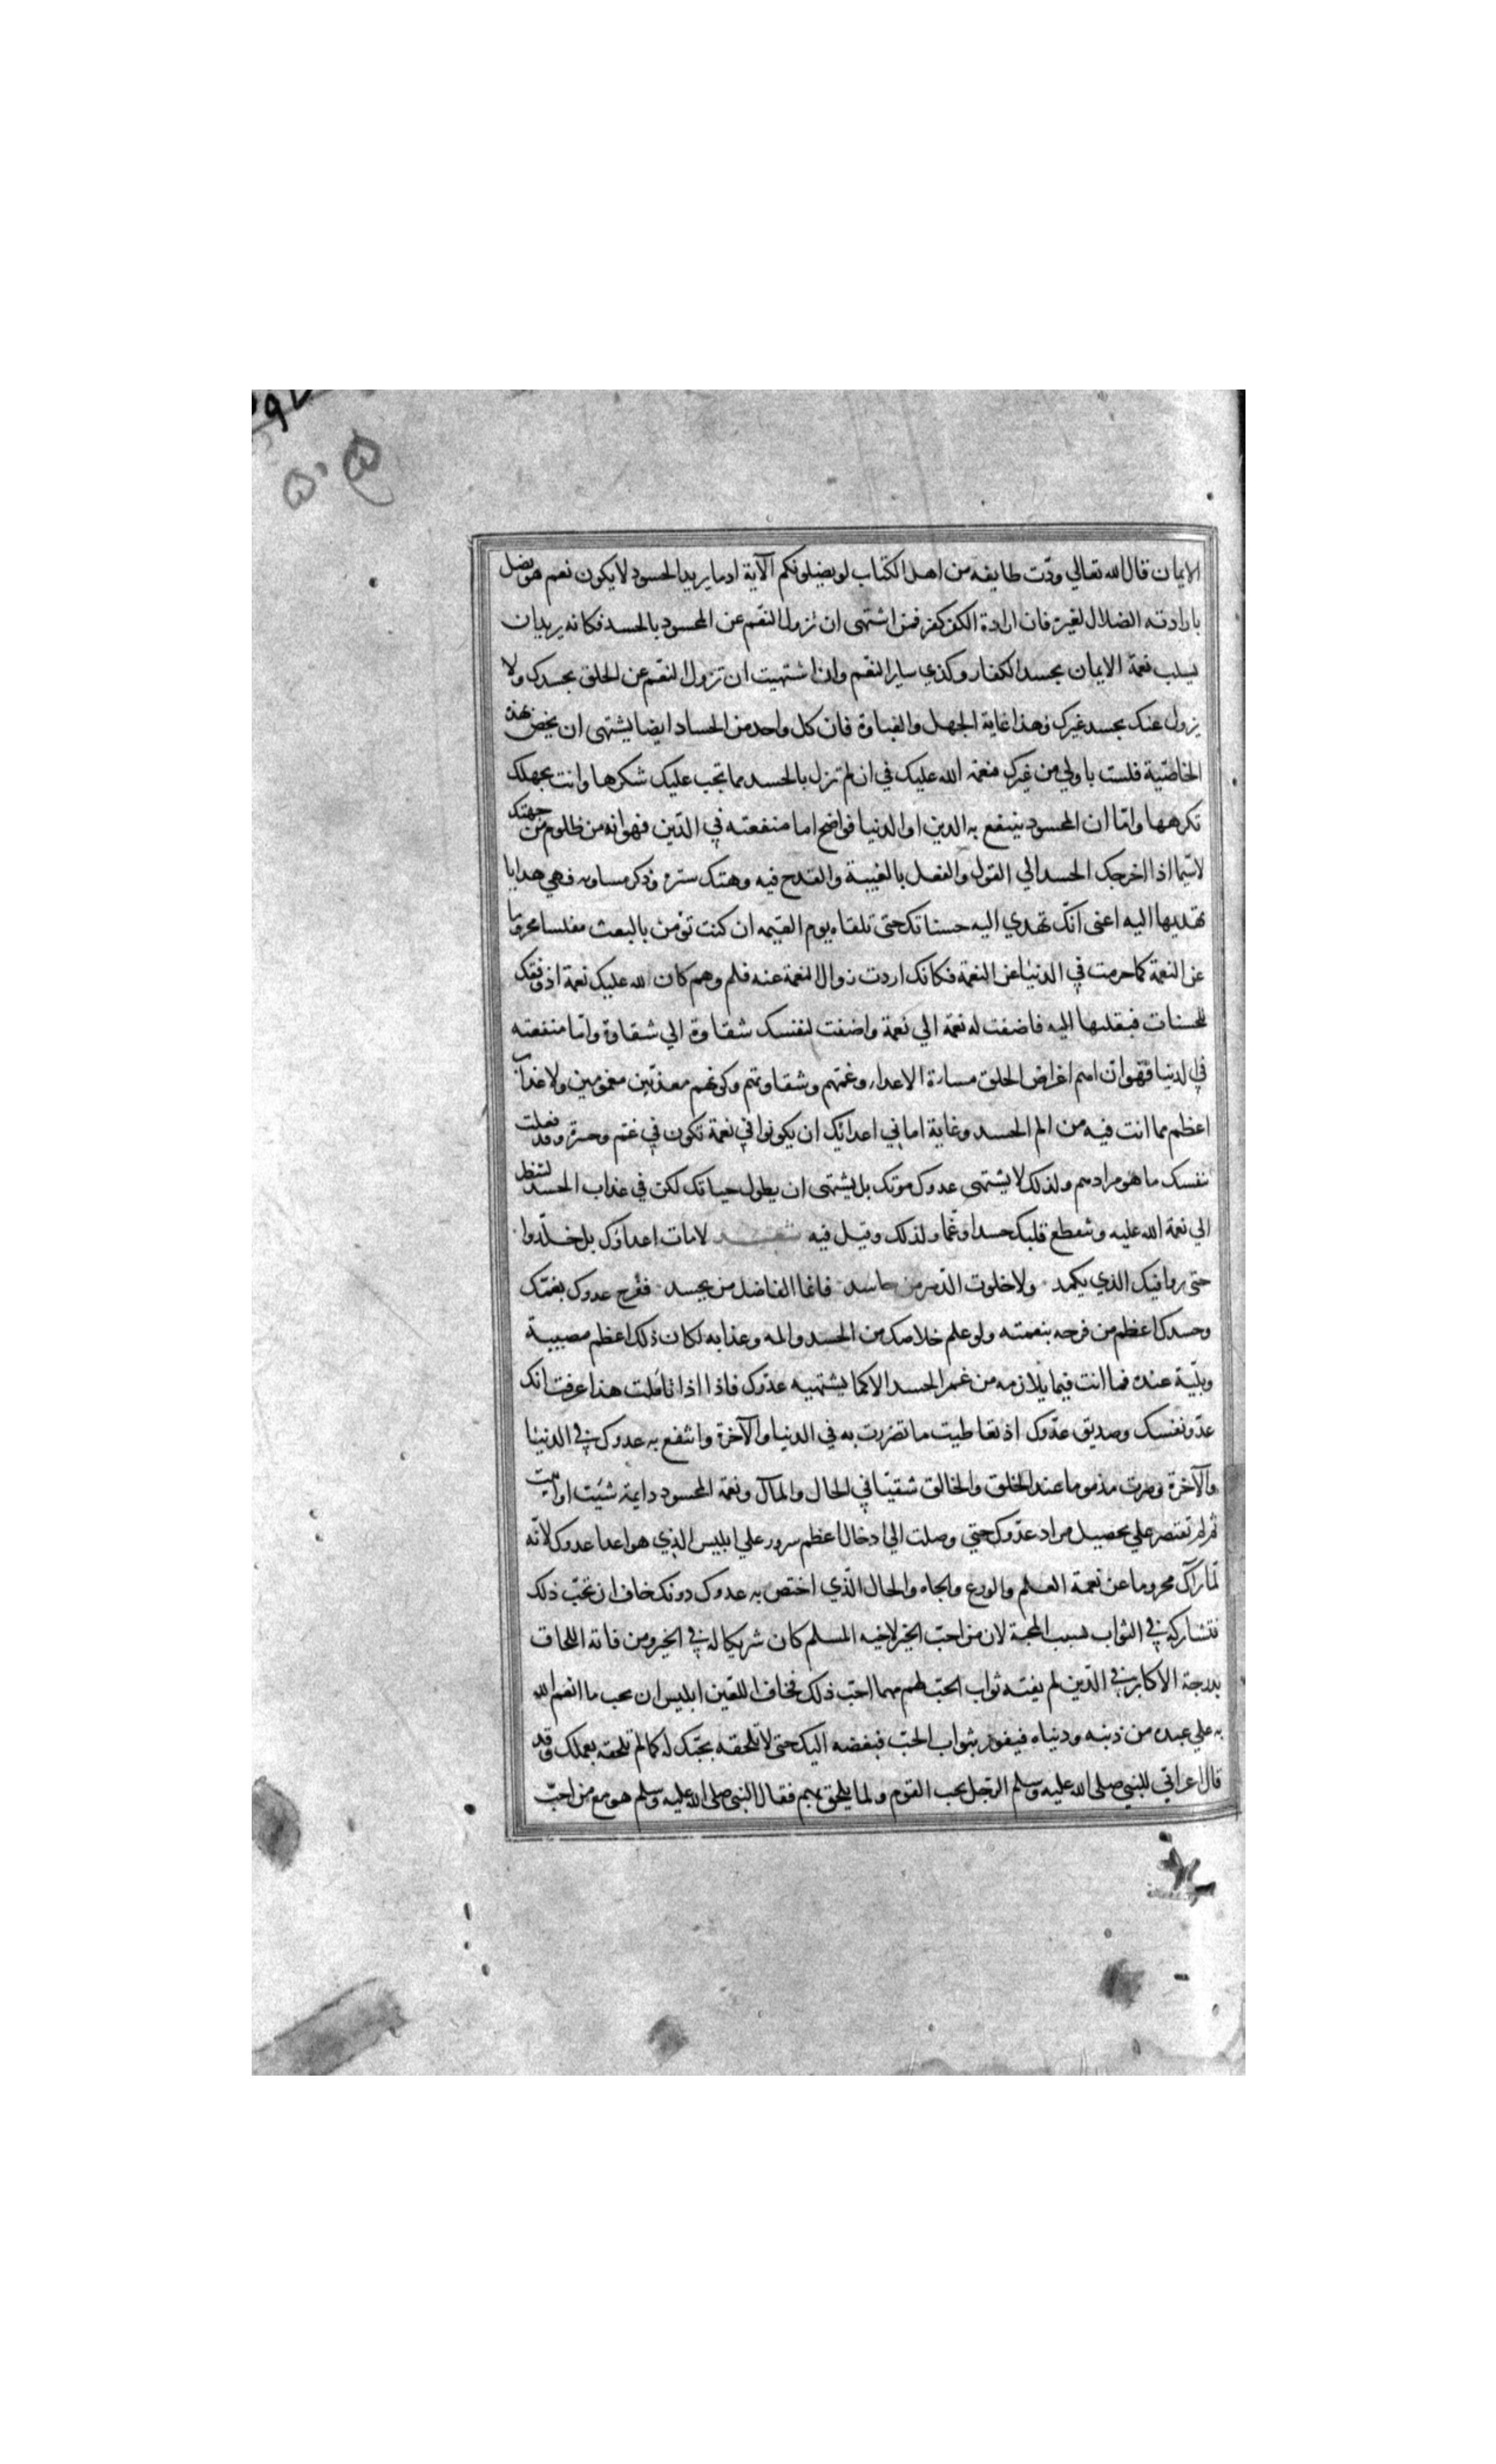 الايمان قال الله تعالي ودّت طايفه من اهل الكتاب لو يضلونكم الآية اذ ما يريد الحسود لا يكون نعم هو يضل
بارادته الضلال لغيره فان ارادة الكفر كفر فمن اشتهى ان تزول النعم عن المحسود بالحسد فكانه يريد ان
يسلب نعمة الايمان بحسد الكفار وكذي ساير النعم وان اشتهيت ان تزول النعم عن الخلق بحسدك ولا
يزول عنك بحسد غيرك وهذا غاية الجهل والغباوة فان كل واحد من الحساد ايضا يشتهى ان يخص بهذه
الخاصّية فلست باولي من غيرك فنعمة الله عليك في ان لم تزل بالحسد مما تجب عليك شكرها وانت بجهلك
تكرهها وامّا ان المحسود ينتفع به الدين او الدنيا فواضح اما منفعته في الدّين فهو انه من ظلوم من جهتك
لاسيّما اذا اخرجك الحسد الي القول والفعل بالغيبة والقدح فيه وهتك ستره وذكر مساويه فهي هدايا
تهديها اليه اعنى انّك تهدي اليه حسناتك حتى تلقاه يوم القيمه ان كنت تؤمن بالبعث مفلسا محروما
عن النعمة كما حرمت في الدنيا عن النعمة فكانك اردت زوال النعمة عنه فلم وهم كان لله عليك نعمة اذ وفقك
للحسنات فبقلبها اليه فاضفت له نعمة الي نعمة واضفت لنفسك شقاوة الي شقاوة وامّا منفعته
في الدنيا فهو انّ اهم اغراض الخلق مسارة الاعداء وغمّهم وشقاوتهم وكونهم معذّبين مغمومين ولا عذاب
اعظم مما انت فيه من الم الحسد وغاية اماني اعدائك ان يكونوا في نعمة تكون في غم وحسرة وقد فعلت
بنفسك ما هو مرادهم ولذلك لا يشتهى عدوك موتك بل يشتهى ان يطول حياتك لكن في عذاب الحسد لتنظر
الي نعمة الله عليه وتنقطع قلبك حسدا وغّما ولذلك وقيل فيه شعر لا مات اعداؤك بل خلّدوا
حتى يروا فيك الذي يكمد ولا خلوت الدّهر من حاسد فانما الفاضل من يحسد ففرح عدوك بغمّك
وحسدك اعظم من فرحه بنعمته ولو علم خلاصك من الحسد والمه وعذابه لكان ذلك اعظم مصيبة
وبليّة عنده فما انت فيما يلازمه من غم الحسد الا كما يشتهيه عدّوك فاذا اذا تاملت هذا عرفت انك
عدّو نفسك وصديق عدّوك اذ تعاطيت ما تضررت به في الدنيا والآخرة وانتفع به عدوك في الدنيا
والآخرة وصرت مذموما عند الخلق والخالق شقيّا في الحال والمآل ونعمة المحسود دايمة شئت او ابيت
ثم لم تقتصر علي تحصيل مراد عدّوك حتي وصلت الي ادخال اعظم سرور علي ابليس الذي هو اعدا عدوك لانّه
لمّا رآك محروما عن نعمة العلم والورع والجاه والحال الّذي اختص به عدوك دونك خاف ان تحّب ذلك
فتشاركه في الثواب بسبب المحبة لان من احبّ الخير لاخيه المسلم كان شريكا له في الخير ومن فاته اللحاق
بدرجة الاكابر في الدّين لم يفته ثواب الحبّ لهم مهما احبّ ذلك فخاف اللعّين ابليس ان تحب ما انعم الله
به علي عبده من دينه ودنياه فيفوز بثواب الحبّ فبغضه اليك حتى لا تلحقه بحبّك له كما لم تلحقه بعملك وقد
قال اعرابّي للنبي صلى الله عليه وسلم الرّجل يحب القوم ولما يلحق بهم فقال النبي صلى الله عليه وسلم هو مع من احبّ